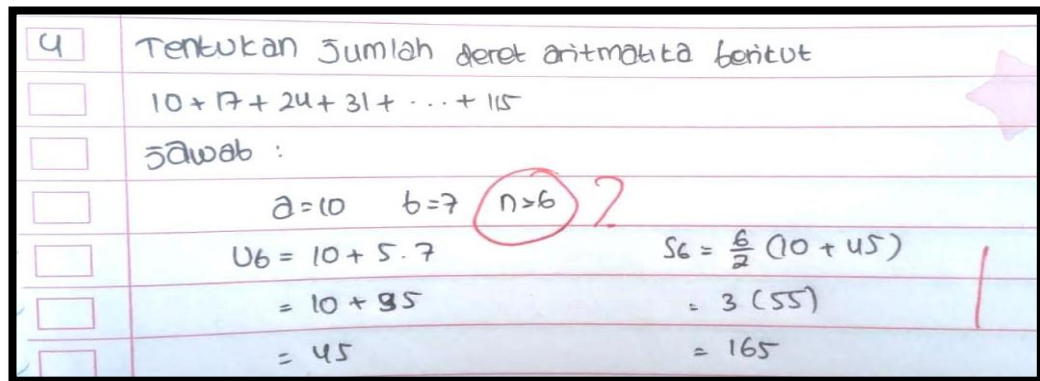 4 Tentukan Jumlah deret aritmatika berikut
10 + 17 + 24 + 31 + ... + 115
Jawab :
a = 10 b = 7 n = 6 ?
U6 = 10 + 5 . 7 S6 = 6/2 (10 + 45)
= 10 + 35 = 3 (55)
= 45 = 165